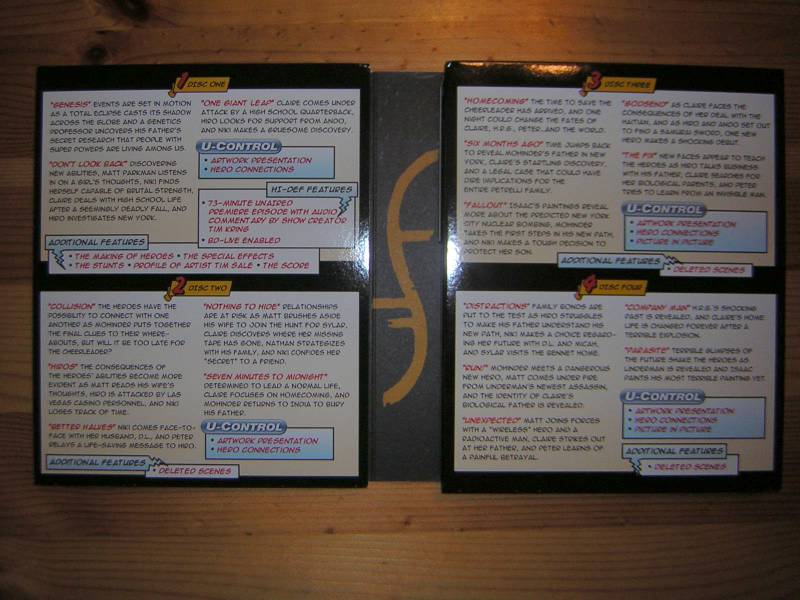 1 DISC ONE
"GENESIS" EVENTS ARE SET IN MOTION
AS A TOTAL ECLIPSE CASTS ITS SHADOW
ACROSS THE GLOBE AND A GENETICS
PROFESSOR UNCOVERS HIS FATHER'S
SECRET RESEARCH THAT PEOPLE WITH
SUPER POWERS ARE LIVING AMONG US.
"DON'T LOOK BACK" DISCOVERING
NEW ABILITIES, MATT PARKMAN LISTENS
IN ON A GIRL'S THOUGHTS, NIKI FINDS
HERSELF CAPABLE OF BRUTAL STRENGTH,
CLAIRE DEALS WITH HIGH SCHOOL LIFE
AFTER A SEEMINGLY DEADLY FALL, AND
HIRO INVESTIGATES NEW YORK.
"ONE GIANT LEAP" CLAIRE COMES UNDER
ATTACK BY A HIGH SCHOOL QUARTERBACK,
HIRO LOOKS FOR SUPPORT FROM ANDO,
AND NIKI MAKES A GRUESOME DISCOVERY.
U-CONTROL
• ARTWORK PRESENTATION
• HERO CONNECTIONS
HI-DEF FEATURES
• 73-MINUTE UNAIRED
PREMIERE EPISODE WITH AUDIO
COMMENTARY BY SHOW CREATOR
TIM KRING
• BD-LIVE ENABLED
ADDITIONAL FEATURES
• THE MAKING OF HEROES • THE SPECIAL EFFECTS
• THE STUNTS • PROFILE OF ARTIST TIM SALE • THE SCORE
2 DISC TWO
"COLLISION" THE HEROES HAVE THE
POSSIBILITY TO CONNECT WITH ONE
ANOTHER AS MOHINDER PUTS TOGETHER
THE FINAL CLUES TO THEIR WHERE-
ABOUTS, BUT WILL IT BE TOO LATE FOR
THE CHEERLEADER?
"HIROS" THE CONSEQUENCES OF
THE HEROES' ABILITIES BECOME MORE
EVIDENT AS MATT READS HIS WIFE'S
THOUGHTS, HIRO IS ATTACKED BY LAS
VEGAS CASINO PERSONNEL, AND NIKI
LOSES TRACK OF TIME.
"BETTER HALVES" NIKI COMES FACE-TO-
FACE WITH HER HUSBAND, D.L., AND PETER
RELAYS A LIFE-SAVING MESSAGE TO HIRO.
"NOTHING TO HIDE" RELATIONSHIPS
ARE AT RISK AS MATT BRUSHES ASIDE
HIS WIFE TO JOIN THE HUNT FOR SYLAR,
CLAIRE DISCOVERS WHERE HER MISSING
TAPE HAS GONE, NATHAN STRATEGIZES
WITH HIS FAMILY, AND NIKI CONFIDES HER
"SECRET" TO A FRIEND.
"SEVEN MINUTES TO MIDNIGHT"
DETERMINED TO LEAD A NORMAL LIFE,
CLAIRE FOCUSES ON HOMECOMING, AND
MOHINDER RETURNS TO INDIA TO BURY
HIS FATHER.
U-CONTROL
• ARTWORK PRESENTATION
• HERO CONNECTIONS
ADDITIONAL FEATURES
• DELETED SCENES
3 DISC THREE
"HOMECOMING" THE TIME TO SAVE THE
CHEERLEADER HAS ARRIVED, AND ONE
NIGHT COULD CHANGE THE FATES OF
CLAIRE, H.R.G., PETER...AND THE WORLD.
"SIX MONTHS AGO" TIME JUMPS BACK
TO REVEAL MOHINDER'S FATHER IN NEW
YORK, CLAIRE'S STARTLING DISCOVERY,
AND A LEGAL CASE THAT COULD HAVE
DIRE IMPLICATIONS FOR THE
ENTIRE PETRELLI FAMILY.
"FALLOUT" ISAAC'S PAINTINGS REVEAL
MORE ABOUT THE PREDICTED NEW YORK
CITY NUCLEAR BOMBING, MOHINDER
TAKES THE FIRST STEPS IN HIS NEW PATH,
AND NIKI MAKES A TOUGH DECISION TO
PROTECT HER SON.
"GODSEND" AS CLAIRE FACES THE
CONSEQUENCES OF HER DEAL WITH THE
HAITIAN, AND AS HIRO AND ANDO SET OUT
TO FIND A SAMURAI SWORD, ONE NEW
HERO MAKES A SHOCKING DEBUT.
"THE FIX" NEW FACES APPEAR TO TEACH
THE HEROES AS HIRO TALKS BUSINESS
WITH HIS FATHER, CLAIRE SEARCHES FOR
HER BIOLOGICAL PARENTS, AND PETER
TRIES TO LEARN FROM AN INVISIBLE MAN.
U-CONTROL
• ARTWORK PRESENTATION
• HERO CONNECTIONS
• PICTURE IN PICTURE
ADDITIONAL FEATURES
• DELETED SCENES
4 DISC FOUR
"DISTRACTIONS" FAMILY BONDS ARE
PUT TO THE TEST AS HIRO STRUGGLES
TO MAKE HIS FATHER UNDERSTAND HIS
NEW PATH, NIKI MAKES A CHOICE REGARD-
ING HER FUTURE WITH D.L. AND MICAH,
AND SYLAR VISITS THE BENNET HOME.
"RUN!" MOHINDER MEETS A DANGEROUS
NEW HERO, MATT COMES UNDER FIRE
FROM LINDERMAN'S NEWEST ASSASSIN,
AND THE IDENTITY OF CLAIRE'S
BIOLOGICAL FATHER IS REVEALED.
"UNEXPECTED" MATT JOINS FORCES
WITH A "WIRELESS" HERO AND A
RADIOACTIVE MAN, CLAIRE STRIKES OUT
AT HER FATHER, AND PETER LEARNS OF
A PAINFUL BETRAYAL.
"COMPANY MAN" H.R.G.'S SHOCKING
PAST IS REVEALED, AND CLAIRE'S HOME
LIFE IS CHANGED FOREVER AFTER A
TERRIBLE EXPLOSION.
"PARASITE" TERRIBLE GLIMPSES OF
THE FUTURE SHAKE THE HEROES AS
LINDERMAN IS REVEALED AND ISAAC
PAINTS HIS MOST TERRIBLE PAINTING YET.
U-CONTROL
• ARTWORK PRESENTATION
• HERO CONNECTIONS
• PICTURE IN PICTURE
ADDITIONAL FEATURES
• DELETED SCENES